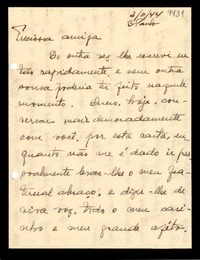 2/5/44
9931
S. Paulo
Luciosa amiga
Da outra vez lhe escrevi mui
tão rapidamente, e nem outra
cousa poderia ter feito naquele
momento. Quero, hoje, con-
versar mais demoradamente
com você, por esta carta, en-
quanto não me é dado ir pes-
soalmente levar-lhe o meu fra-
ternal abraço, e dizer-lhe de
viva voz, todo o meu cari-
nho e meu grande afeto.